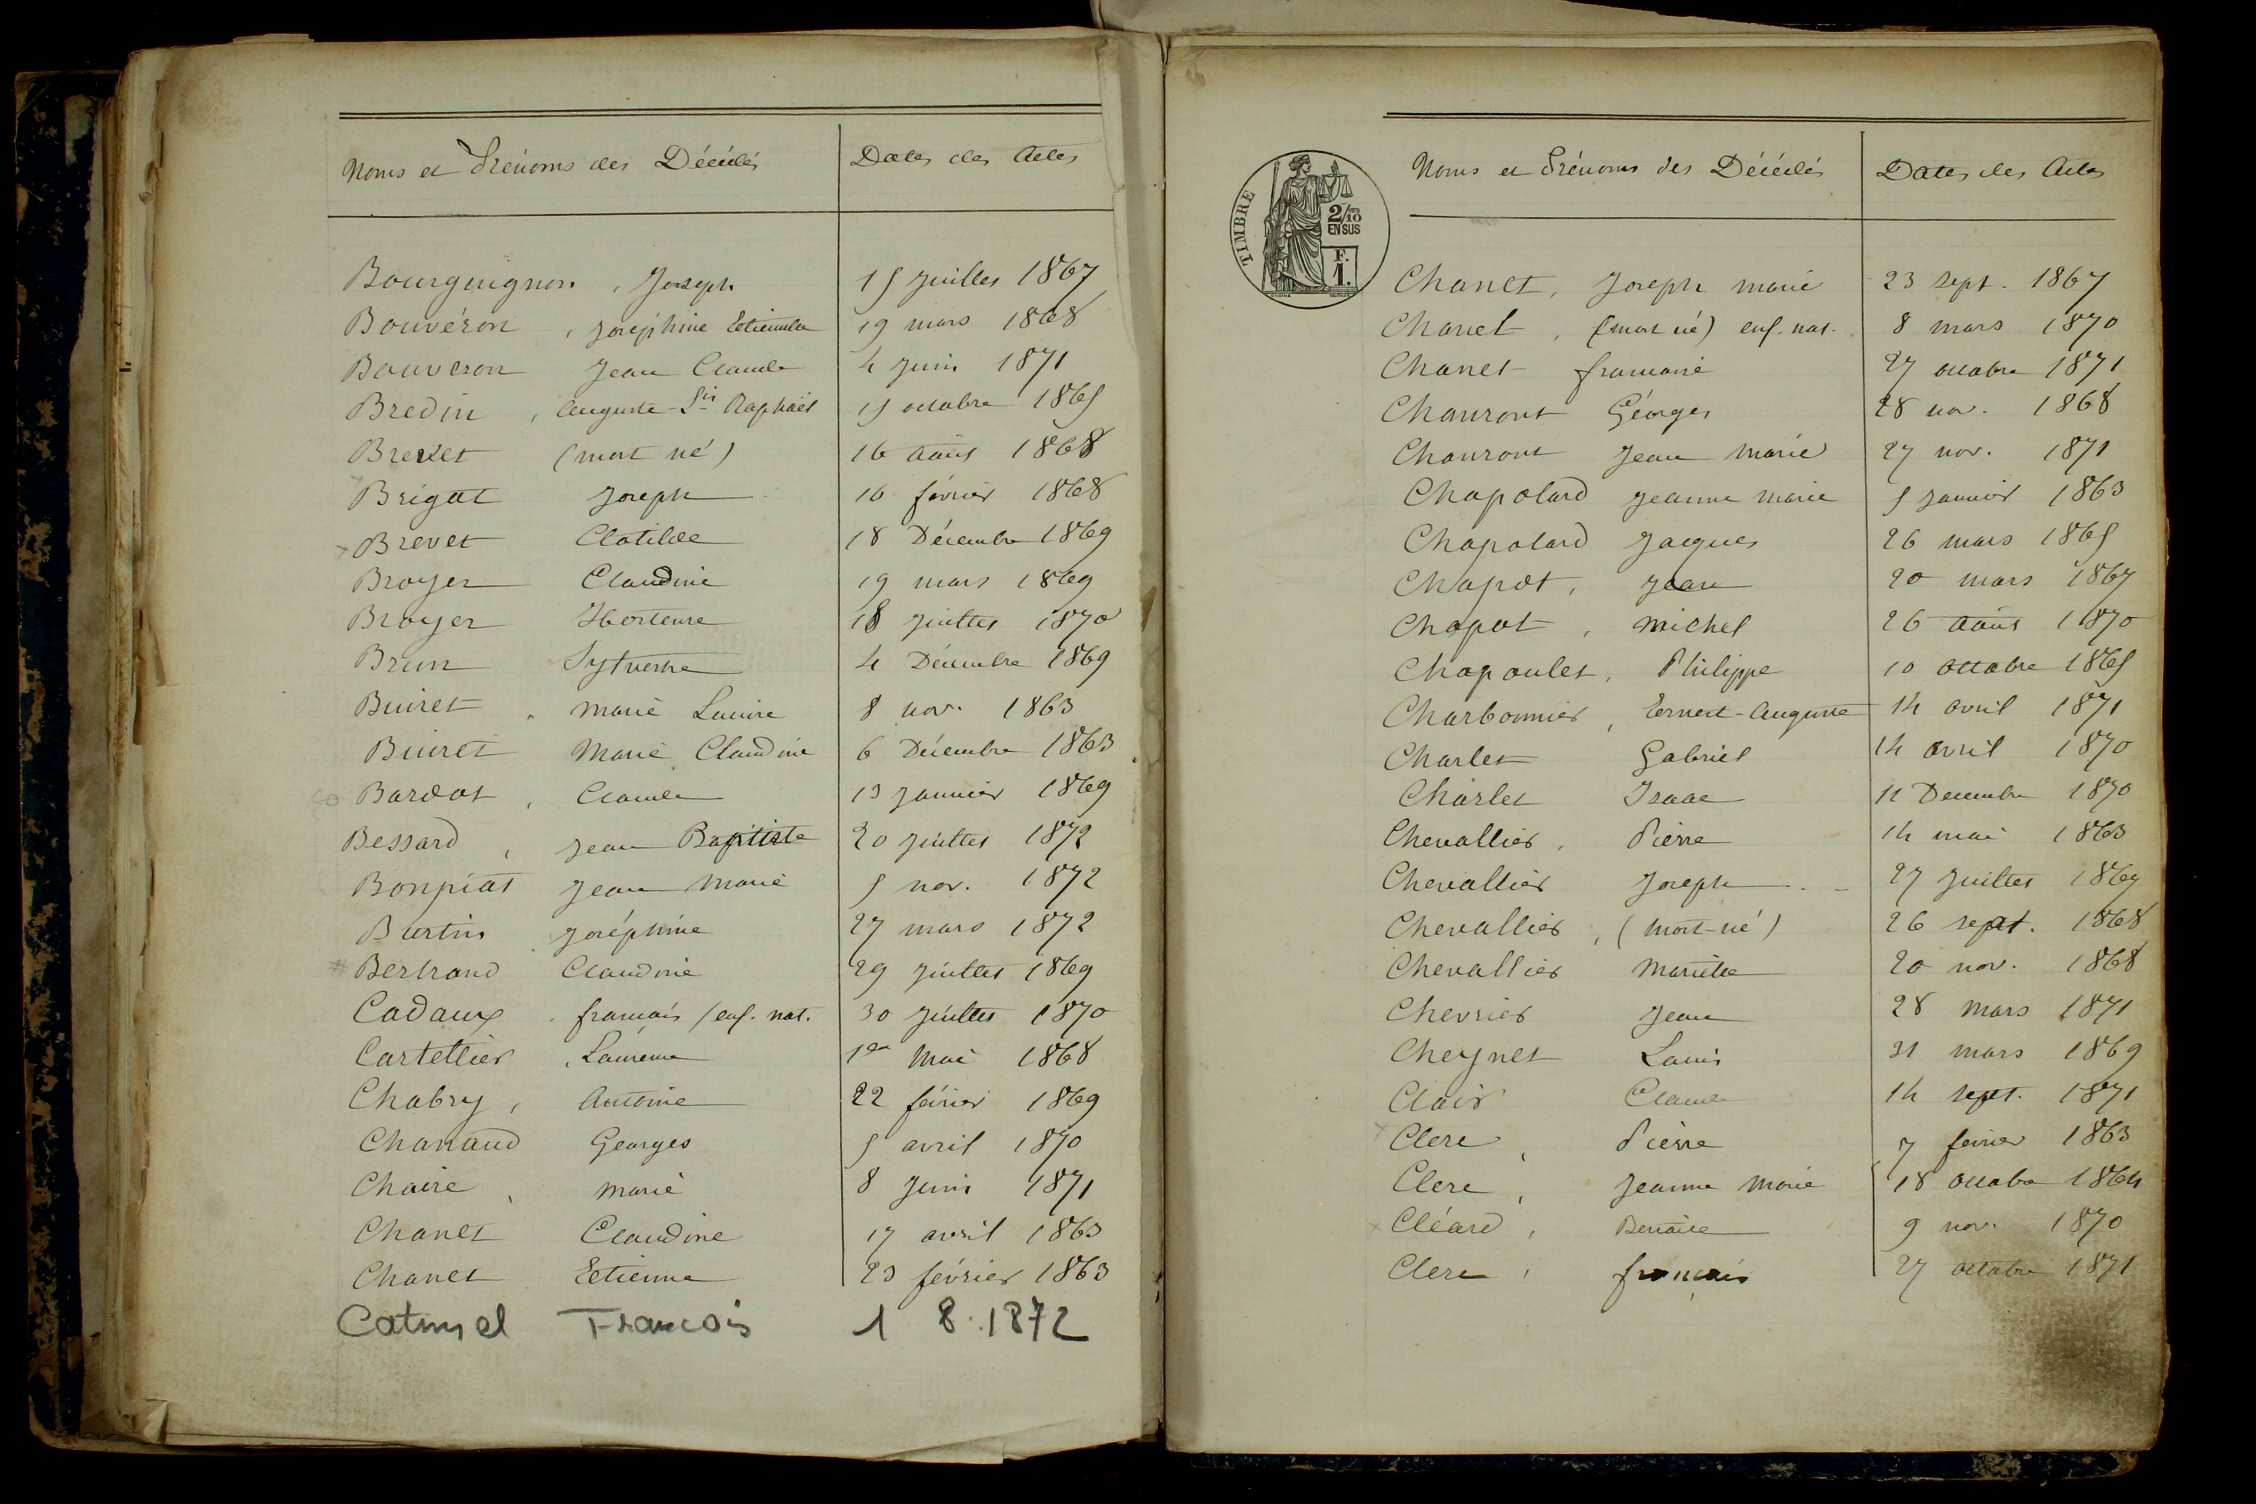 Noms et Prénoms des Décédés Dates des Actes
Bourguignon, Joseph 15 juillet 1867
Bouvéron, Joséphine Etiennette 19 mars 1868
Bouveron Jean Claude 4 juin 1871
Bredin, Auguste Raphaël 15 octobre 1865
Brevet (mort né) 16 août 1868
Brigat Joseph 16 février 1868
Brevet Clotilde 18 Décembre 1869
Broyer Claudine 19 mars 1869
Broyer Hortense 18 juillet 1870
Brun Sylvestre 4 Décembre 1869
Buiret, Marie Louise 8 nov. 1863
Buiret Marie Claudine 6 Décembre 1863
Bardot, Claude 13 janvier 1869
Bessard, Jean Baptiste 20 juillet 1872
Bonpiat Jean Marie 5 nov. 1872
Burtin Joséphine 27 mars 1872
Bertrand Claudine 29 juillet 1869
Cadaux, français (enf. nat. 30 juillet 1870
Cartellier, Laurence 1er mai 1868
Chabry, Antoine 22 février 1869
Chanaud Georges 5 avril 1870
Chaire, Marie 8 juin 1871
Chanet Claudine 17 avril 1863
Chanet Etienne 23 février 1863
Catinel Francois 1 8.1872
TIMBRE
2/10
EN SUS
F.
1.
Noms et Prénoms des Décédés Dates des Actes
Chanet, Joseph marie 23 sept. 1867
Chanet, (mort né) enf. nat. 8 mars 1870
Chanet 27 octobre 1871
Chanront Géorges 28 nov. 1868
Chanront Jean Marie 27 nov. 1871
Chapolard Jeanne marie 5 janvier 1863
Chapolard Jacques 26 mars 1865
Chapot, Jean 20 mars 1867
Chapot, michel 26 août 1870
Chapoulet, Philippe 10 octobre 1865
Charbonnier, Ernest-Auguste 14 avril 1871
Charlet Gabriel 14 avril 1870
Charlet Isaac Décembre 1870
Chevallier, Pierre 14 mai 1863
Chevallier Joseph 27 juillet
Chevallier, (mort-né) 26 sept. 1868
Chevallier Mariette 20 nov. 1868
Chevrier Jean 28 mars 1871
Cheynet Louis 31 mars 1869
Clair Claude 14 sept. 1871
Clerc, Pierre 7 février 1863
Clerc, Jeanne Marie 18 octobre 1864
Cléard, 9 nov. 1870
Clerc, français 27 octobre 1871